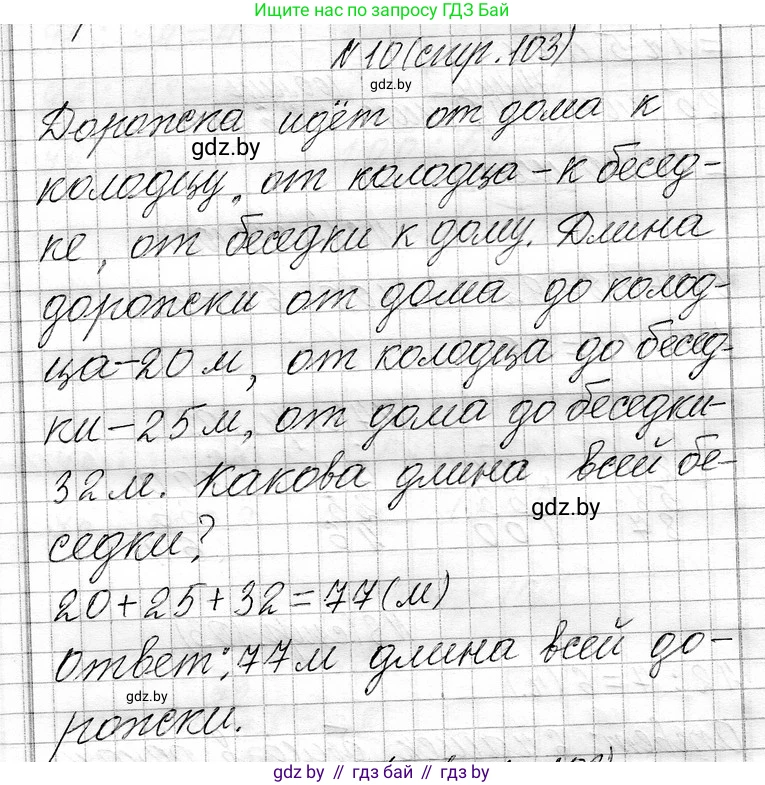 Ищите нас по запросу ГДЗ Бай
N 10 (стр. 103)
gdz.by
Дорожка идёт от дома к
gdz.by
колодцу, от колодца - к бесед-
ке, от беседки к дому. Длина
дорожки от дома до колод-
ца-20 м, от колодца до бесед-
ки-25 м, от дома до беседки-
32 м. Какова длина всей бе-
gdz.by
седки?
20+25+32=77(м)
Ответ: 77 м длина всей до-
gdz.by
рожки.
gdz.by // гдз бай // гдз.by